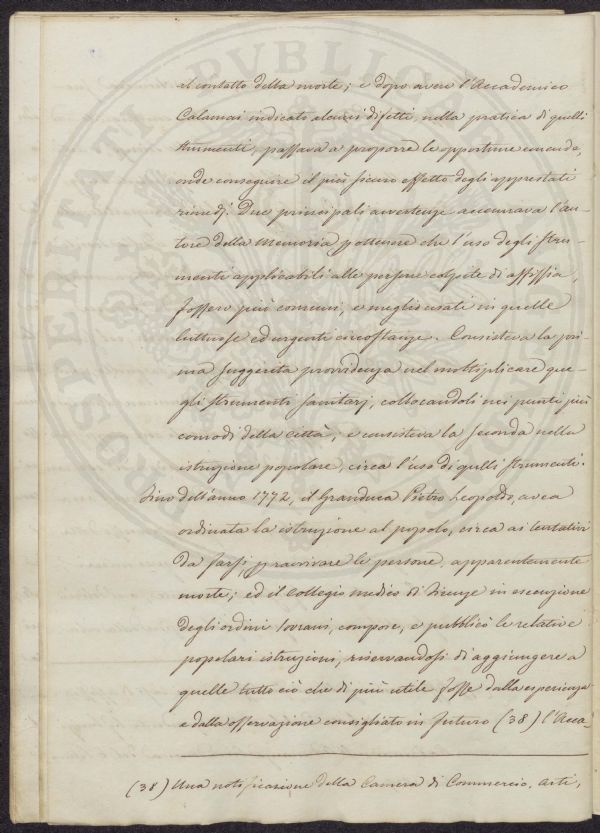 al contatto della morte; e dopo avere l'Accademico
Calamai indicato alcuni difetti, nella pratica di quelli
strumenti, passava a proporre le opportune emende,
onde conseguire il più sicuro effetto degli apprestati
rimedj. Due principali avvertenze accennava l'au-
tore della Memoria per ottenere che l'uso degli stru-
menti applicabili alle persone colpite di assfissia,
fossero più comuni, e meglio usati in quelle
luttuose ed urgenti circostanze. Consisteva la pri-
ma suggerita provvidenza nel moltiplicare que-
gli strumenti sanitarj, collocandoli nei punti più
comodi della Città, e consisteva la seconda nella
istruzione popolare, circa l'uso di quelli strumenti.
Fino dell'anno 1772, il Granduca Pietro Leopoldo, avea
ordinata la istruzione al popolo, circa ai tentativi
da farsi, p ravvivare le persone, apparentemente
morte; ed il Collegio medico di Firenze in esecuzione
degli ordini sovrani, compose, e pubblicò le relative
popolari istruzioni, riservandosi di aggiungere a
quelle tutto ciò che di più utile fosse dalla esperienza
e dalla osservazione consigliato in futuro (38) l'Acca-
(38) Una notificazione della Camera di Commercio, Arti,
PROSPERITATI PVBLICAE